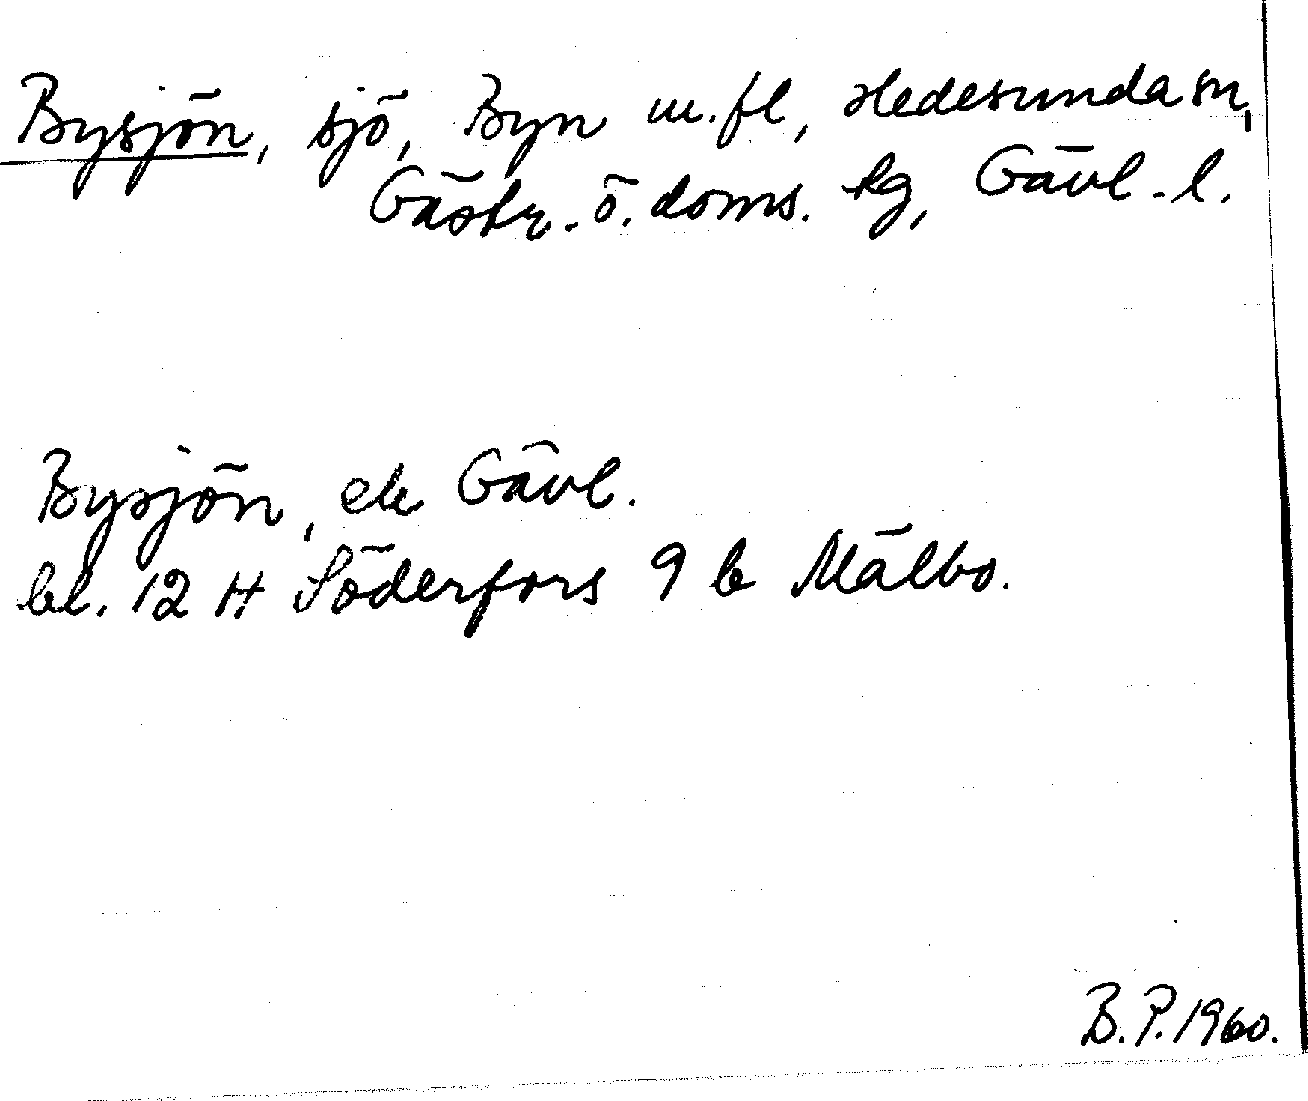 Bysjön, sjö, Byn m.fl, Hedesunda sn,
Gästr. ö. doms. tg, Gävl. l.
Bysjön, ek Gävl.
bl. 12 H Söderfors 9 b Målbo.
B.P. 1960.